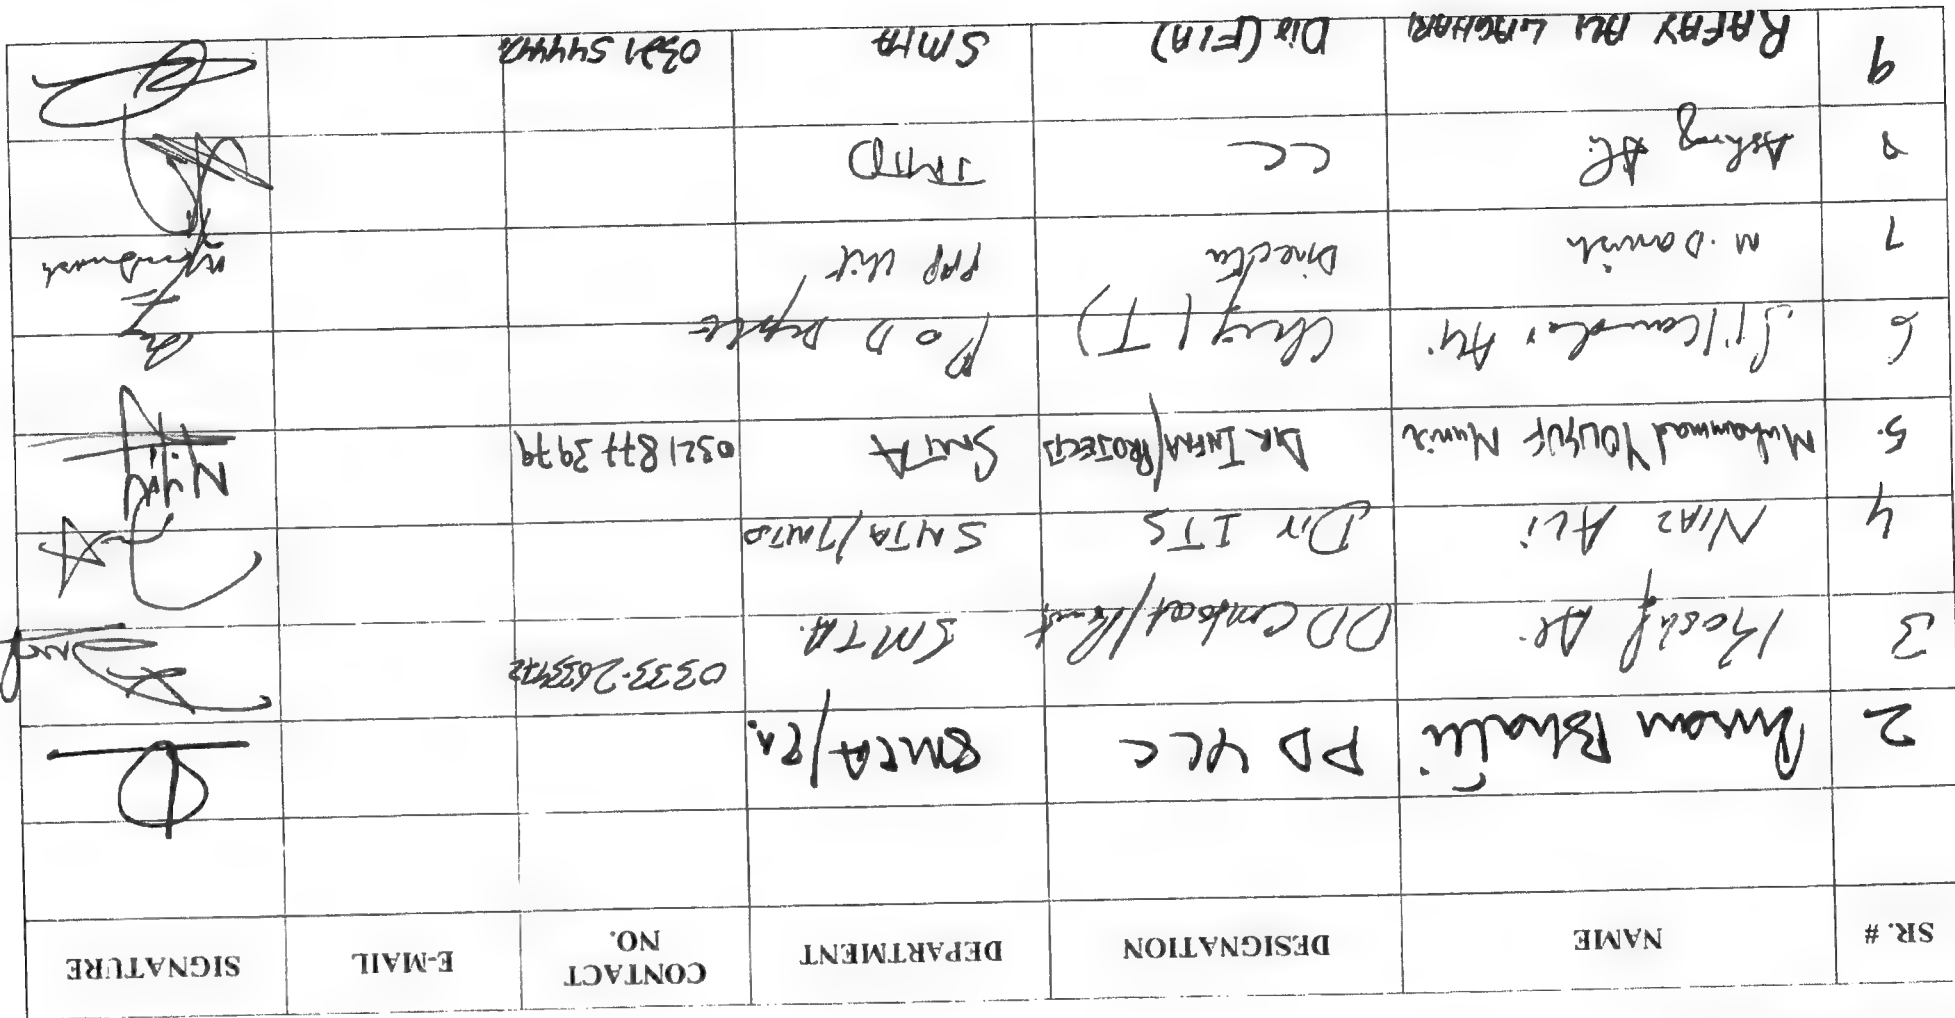 SR. # NAME DESIGNATION DEPARTMENT CONTACT NO. E-MAIL SIGNATURE
2 Imran Bhatti PD YLC SMTA/
3 Kashif Ali DD Contract/ SMTA. 0333-2633472
4 NIAZ ALI Dir ITS SMTA/TMTD
5. Muhammad YOUSUF Munir DIR INFRA/PROJECTS SMTA 0321 8773979
6 Sikandar Ali Chief (T) P & D Deptt
7 M. Danish Director PPP Unit
8 Ashraf Ali CC TMTD
9 RAFAY ALI LAGHARI Dir (FIN) SMTA